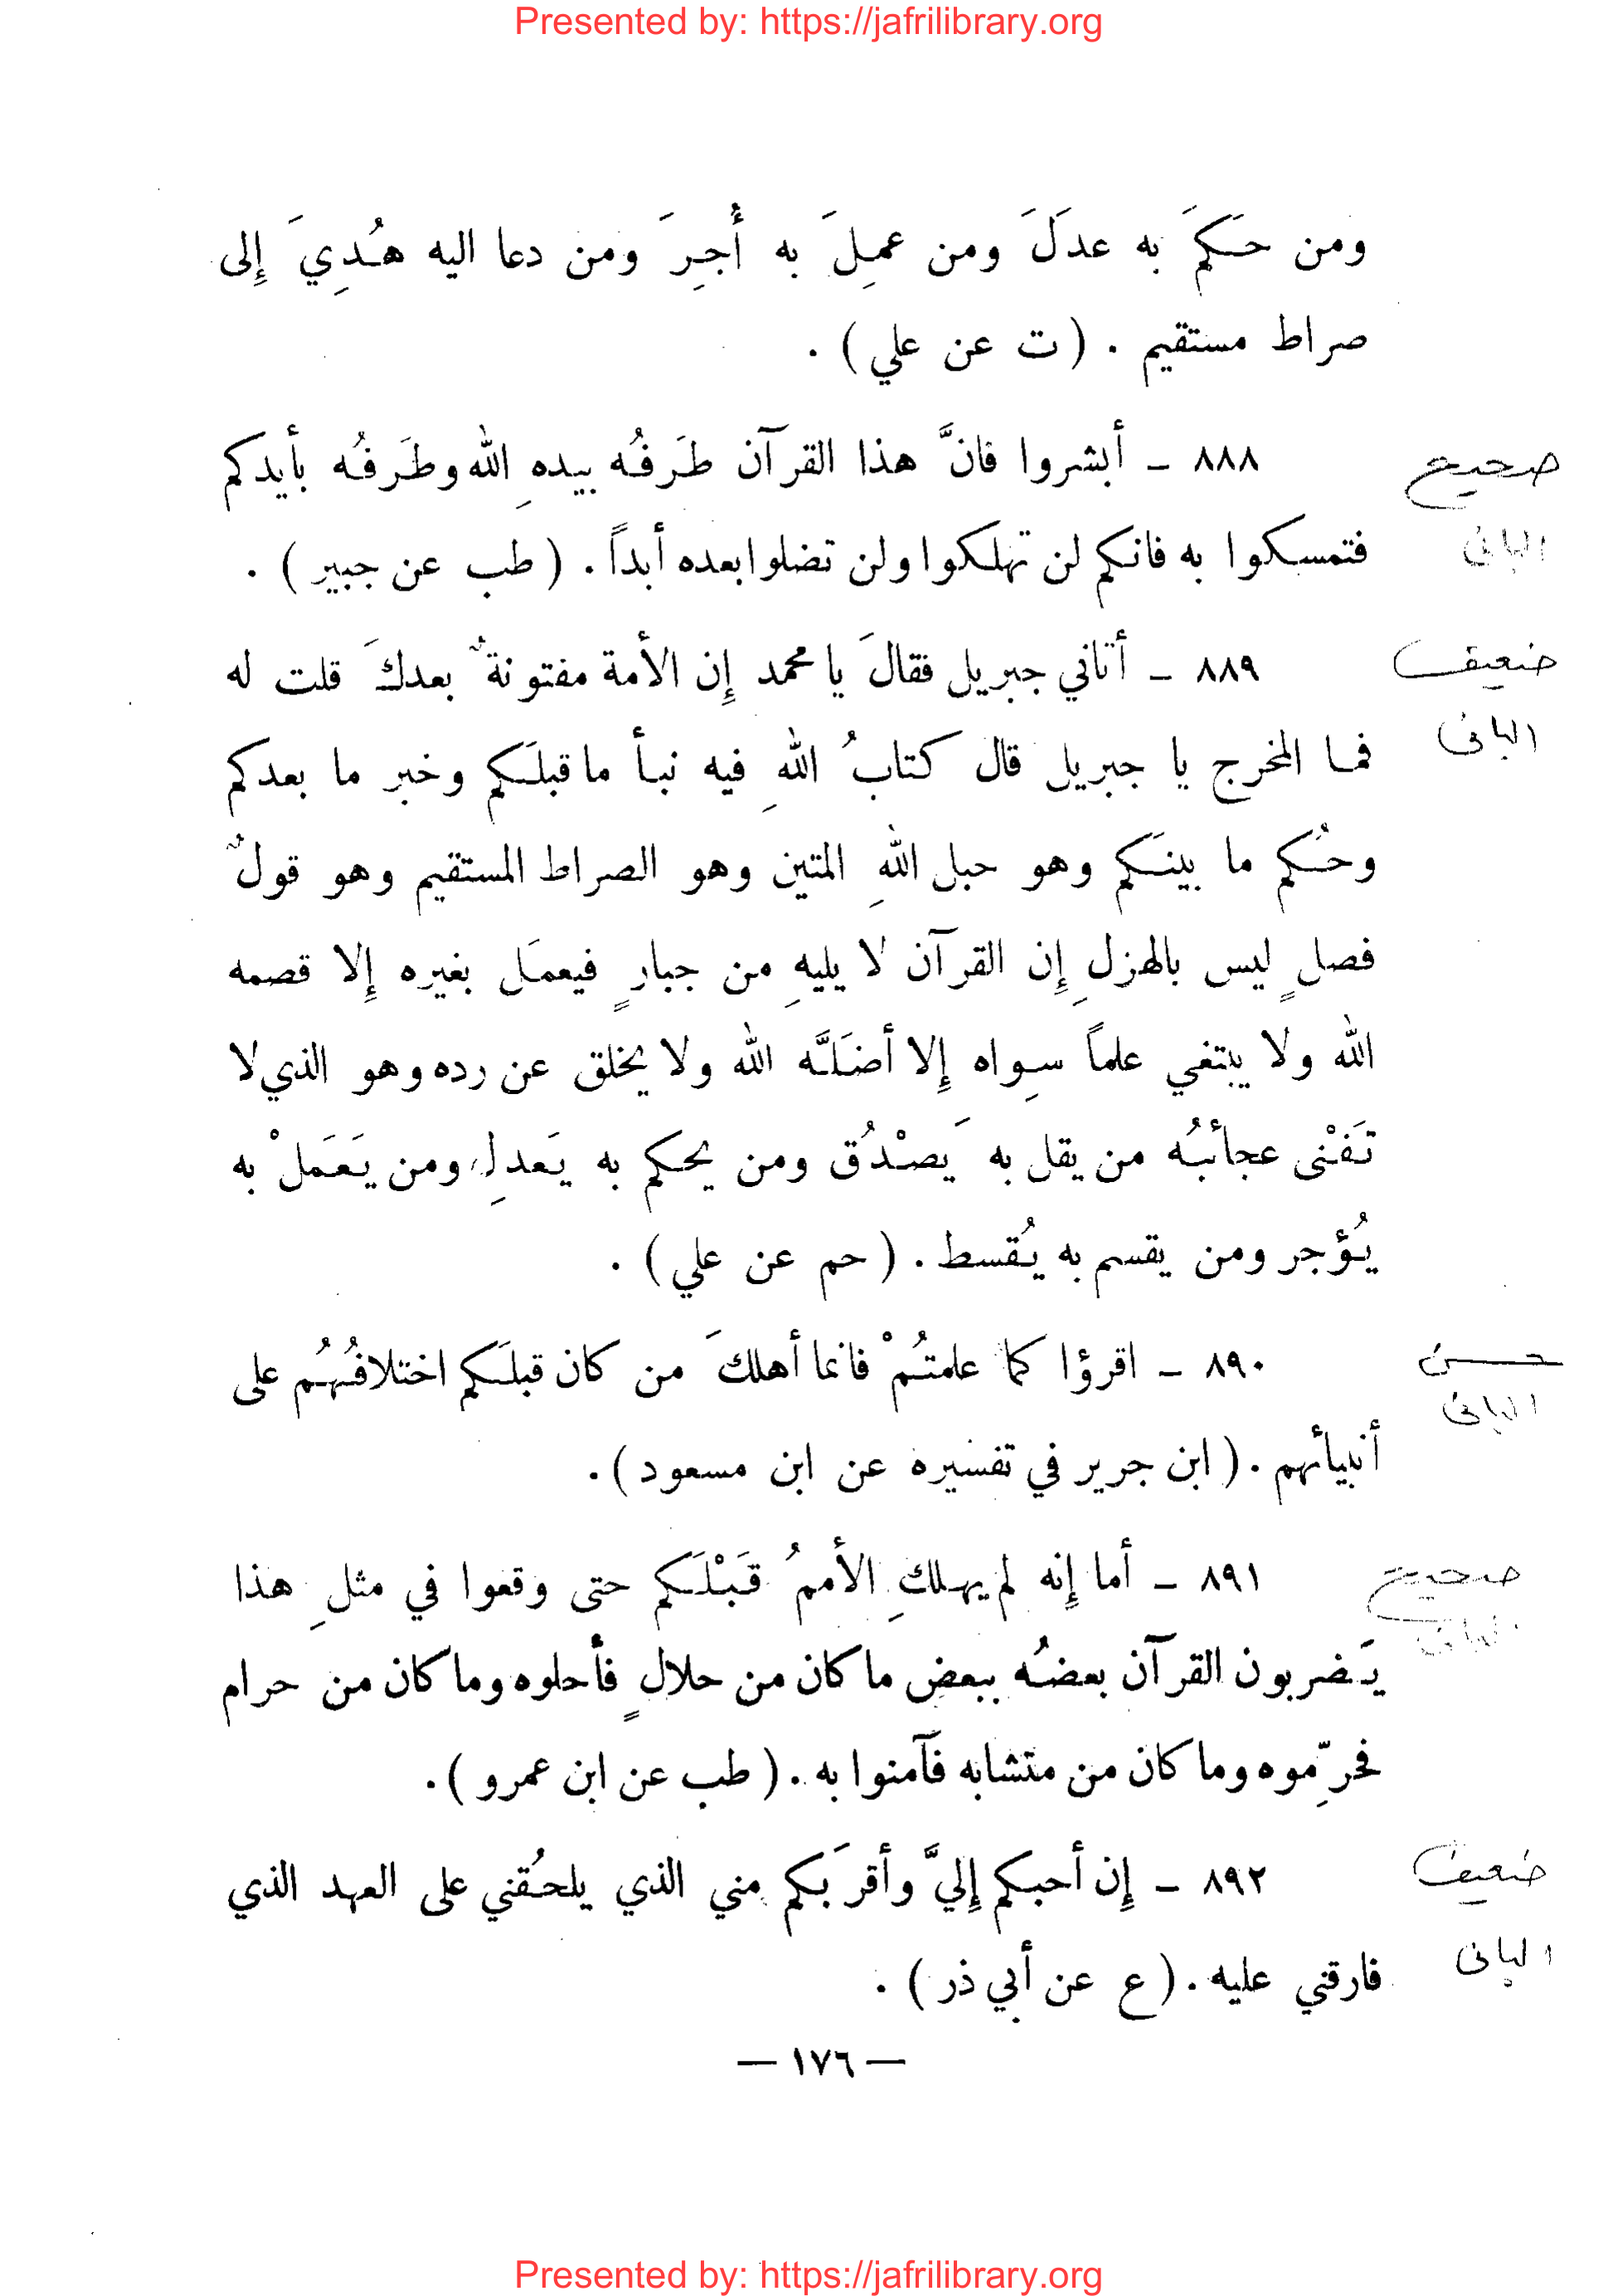 Presented by: https://jafrilibrary.org
ومن حَكمَ به عدلَ ومن عمِلَ به أُجِرَ ومن دعا اليه هُدِيَ إِلى
صراط مستقيم . ( ت عن علي ) .
٨٨٨ - أبشروا فانَّ هذا القرآن طَرفُه بيدهِ الله وطَرفُه بأيدكم
صحيح
فتمسكوا به فانكم لن تهلكوا ولن تضلوا بعده أبداً . ( طب عن جبير ) .
البانى
٨٨٩ - أتاني جبريل فقالَ يا محمد إِن الأمة مفتونةٌ بعدكَ قلت له
ضعيف
فما المخرج يا جبريل قال كتابُ اللهِ فيه نبأ ما قبلَكم وخبر ما بعدكم
البانى
وحُكم ما بينَكم وهو حبل اللهِ المتين وهو الصراط المستقيم وهو قولٌ
فصلٍ ليس بالهزلِ إِن القرآن لا يليهِ من جبارٍ فيعمَل بغيره إِلا قصمه
الله ولا يبتغي علماً سِواه إِلا أضَلَّه الله ولا يخلق عن رده وهو الذي لا
تَفْنى عجائبُه من يقل به يَصْدُق ومن يحكم به يَعدلِ ومن يَعَمَلْ به
يُؤجر ومن يقسم به يُقسط . ( حم عن علي ) .
٨٩٠ - اقرؤا كما علمتُمْ فانما أهلكَ من كان قبلَكم اختلافُهُم على
حسن
البانى
أنبيائهم . ( ابن جرير في تفسيره عن ابن مسعود ) .
٨٩١ - أما إِنه لم يهلكِ الأممُ قَبْلَكم حتى وقعوا في مثلِ هذا
صحيح
البانى
يَضربون القرآن بعضُه ببعضٍ ما كان من حلالٍ فأحلوه وما كان من حرام
فحرِّموه وما كان من متشابه فآمنوا به . ( طب عن ابن عمرو ) .
٨٩٢ - إِن أحبكم إِليَّ وأقرَبكم مني الذي يلحُقني على العهد الذي
ضعيف
فارقني عليه . ( ع عن أبي ذر ) .
البانى
— ١٧٦ —
Presented by: https://jafrilibrary.org